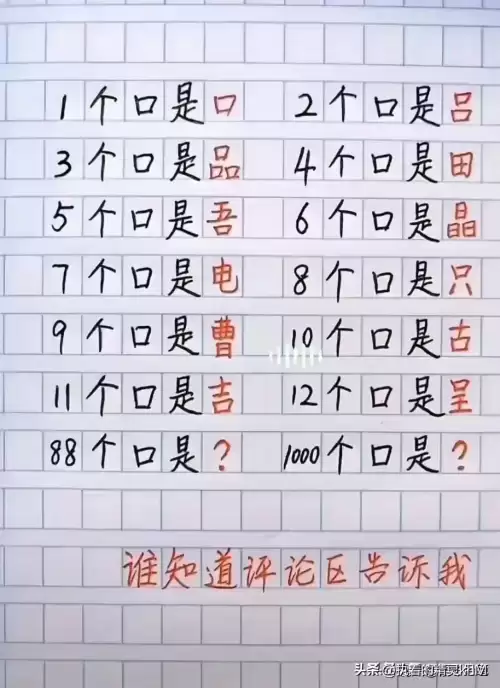 1个口是口 2个口是吕
3个口是品 4个口是田
5个口是吾 6个口是晶
7个口是电 8个口是只
9个口是曹 10个口是古
11个口是吉 12个口是呈
88个口是? 1000个口是?
谁知道评论区告诉我
头条